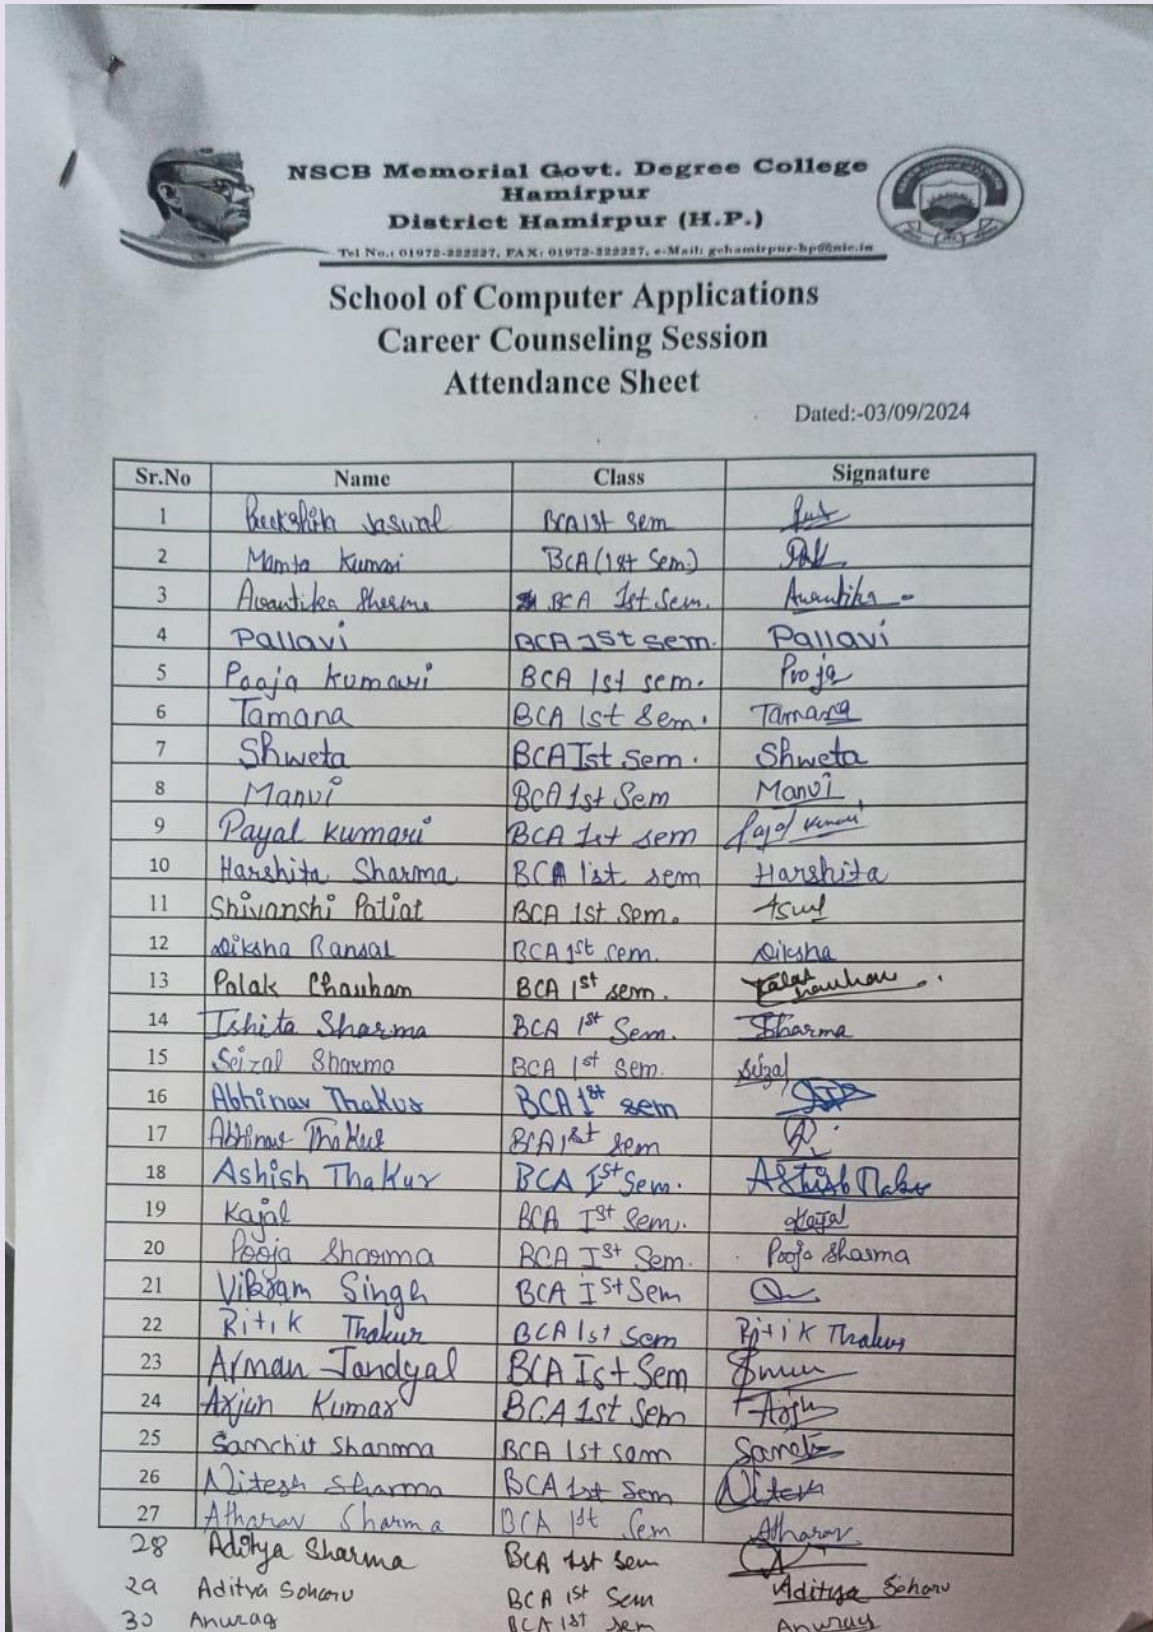 NSCB Memorial Govt. Degree College
Hamirpur
District Hamirpur (H.P.)
Tel No.: 01972-222227, FAX: 01972-222227, e-Mail: gchamirpur-hp@nic.in
School of Computer Applications
Career Counseling Session
Attendance Sheet
Dated:-03/09/2024
Sr.No Name Class Signature
1 Jaswal BCA 1st Sem
2 Mamta Kumari BCA (1st Sem.)
3 Avantika Sharma BCA 1st Sem. Avantika
4 Pallavi BCA 1st sem. Pallavi
5 Pooja Kumari BCA 1st sem. Pooja
6 Tamana BCA 1st Sem. Tamana
7 Shweta BCA Ist Sem. Shweta
8 Manvi BCA 1st Sem Manvi
9 Payal Kumari BCA 1st sem Payal Kumari
10 Harshita Sharma BCA 1st sem Harshita
11 Shivanshi BCA 1st Sem.
12 Diksha Bansal BCA 1st sem. Diksha
13 Palak Chauhan BCA 1st sem. Palak Chauhan
14 Ishita Sharma BCA 1st Sem. Sharma
15 Seizal Sharma BCA 1st Sem. Seizal
16 Abhinav Thakur BCA 1st sem
17 Abhinav Thakur BCA 1st sem
18 Ashish Thakur BCA Ist Sem. Ashish Thakur
19 Kajal BCA Ist Sem. Kajal
20 Pooja Sharma BCA Ist Sem. Pooja Sharma
21 Vikram Singh BCA Ist Sem
22 Ritik Thakur BCA 1st Sem Ritik Thakur
23 Arman Jandyal BCA Ist Sem
24 Arjun Kumar BCA 1st Sem Arjun
25 Sanchit Sharma BCA 1st sem
26 Nitesh Sharma BCA 1st Sem Nitesh
27 Atharav Sharma BCA 1st Sem Atharav
28 Aditya Sharma BCA 1st Sem
29 Aditya Soharu BCA 1st Sem Aditya Soharu
30 Anurag BCA 1st sem Anurag